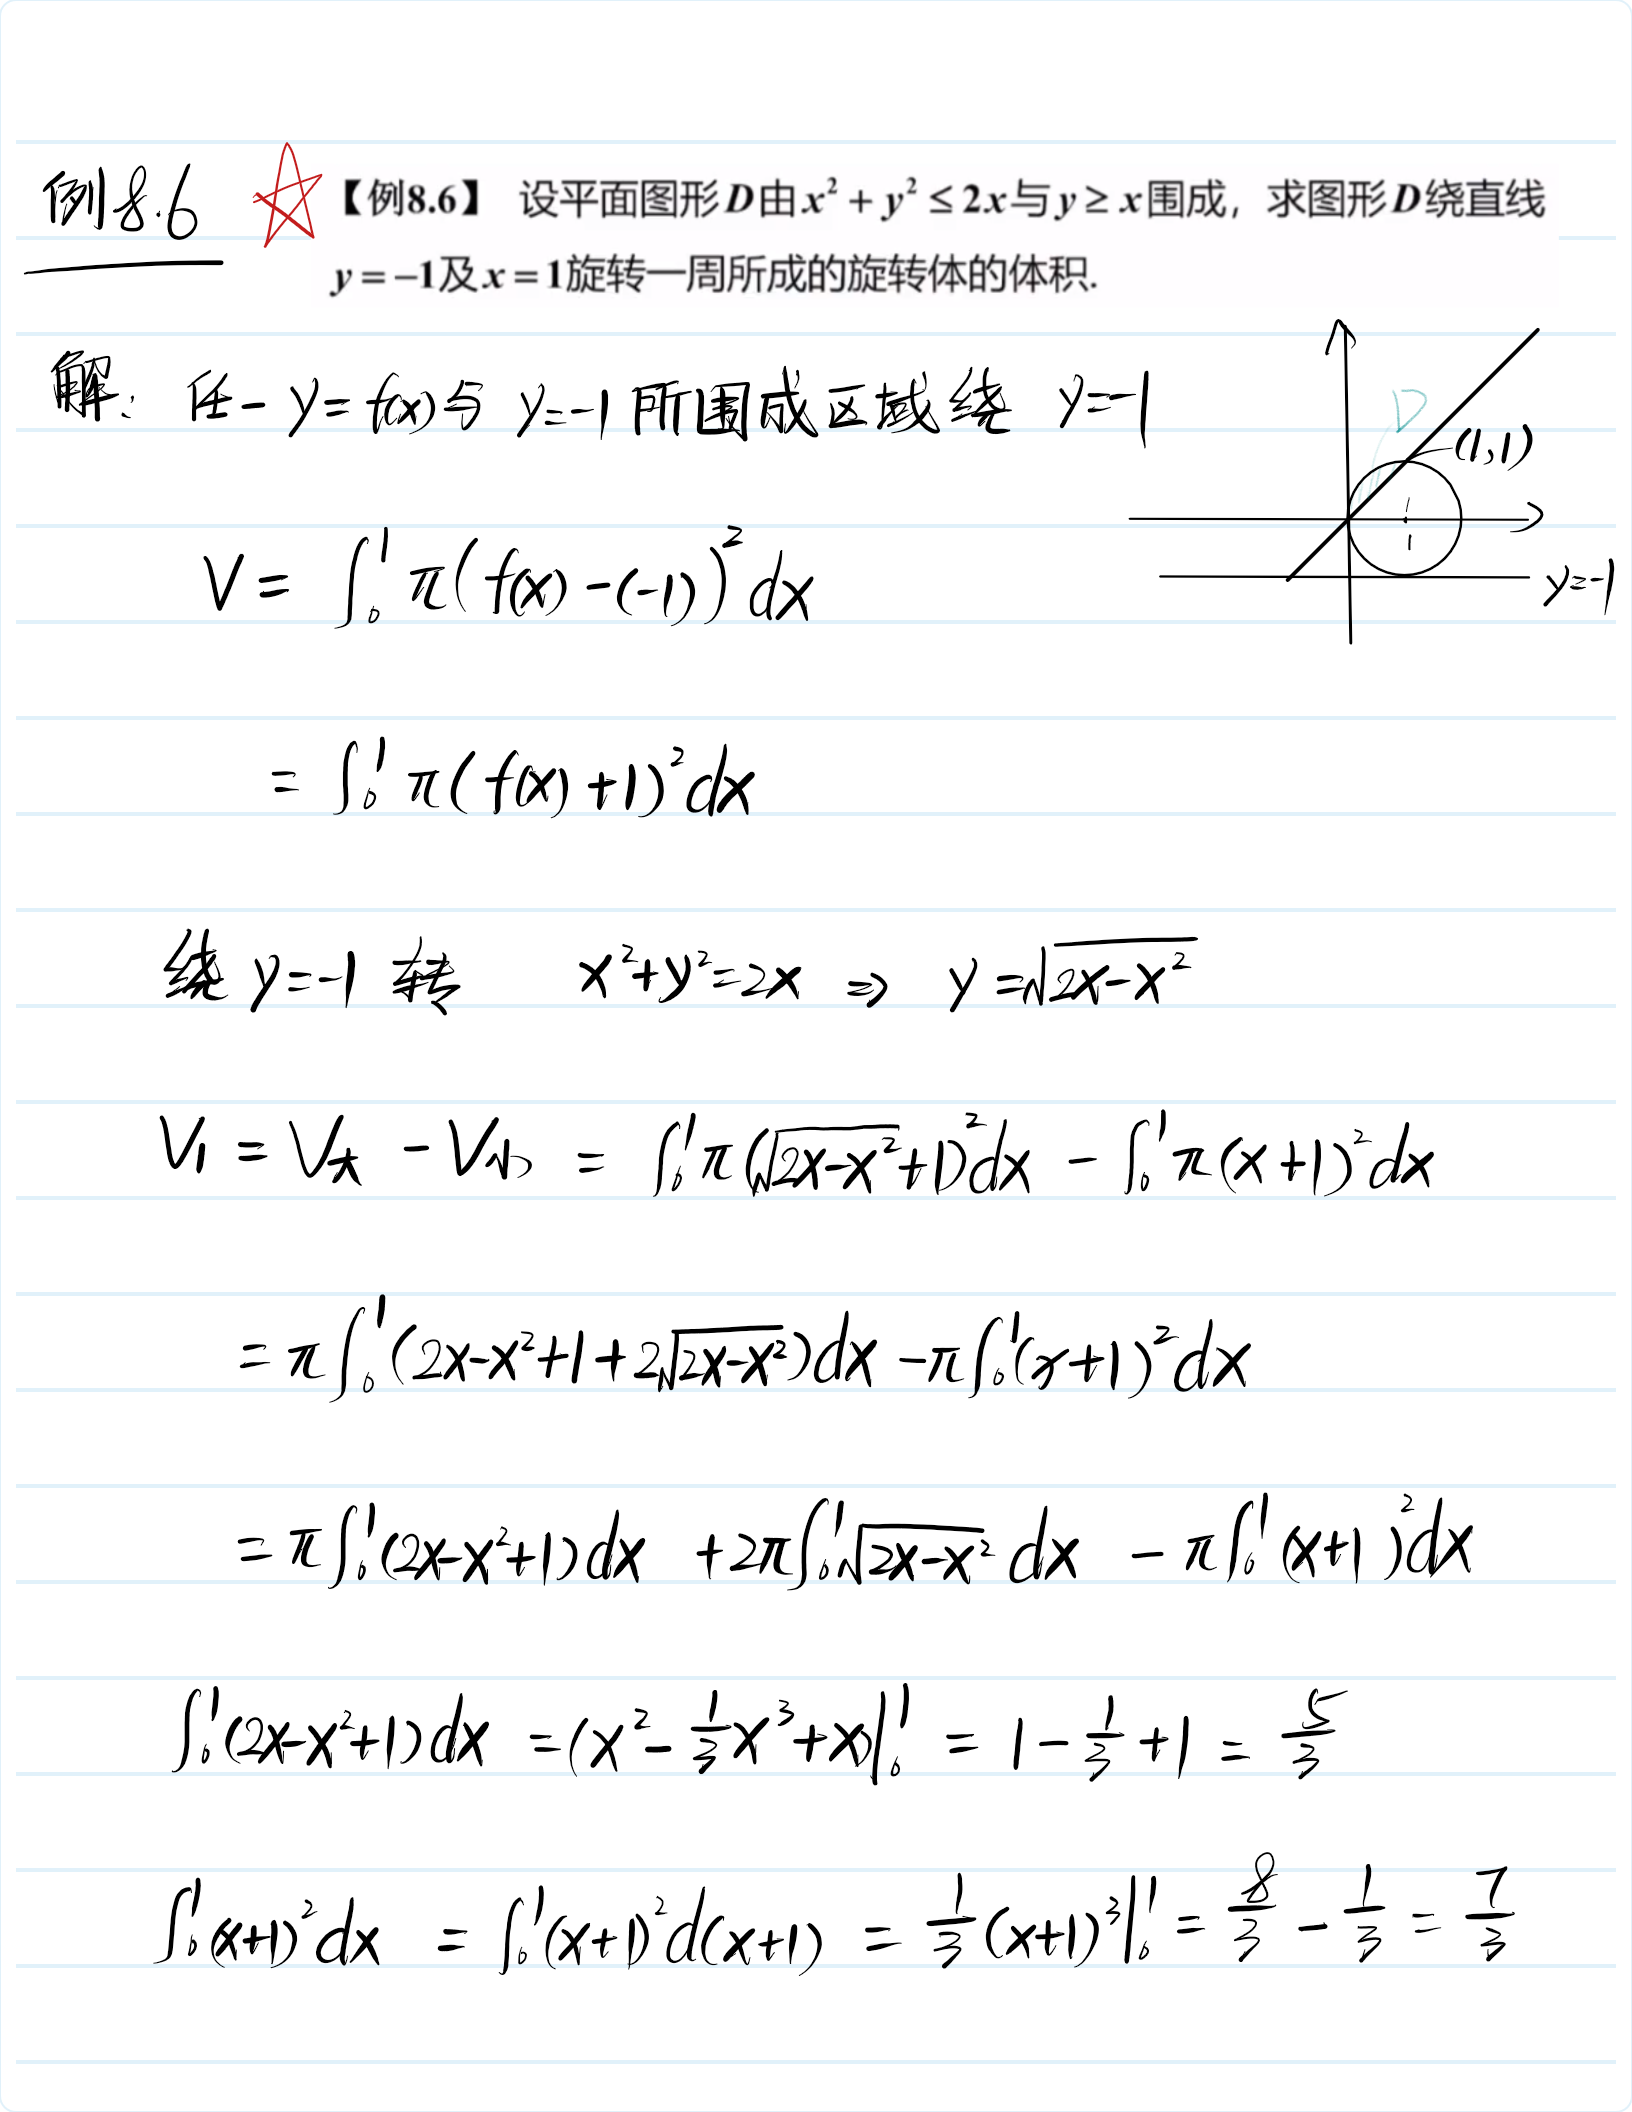 例8.6
【例8.6】 设平面图形D由x²+y²≤2x与y≥x围成，求图形D绕直线
y=-1及x=1旋转一周所成的旋转体的体积.
解: 任一 y=f(x)与 y=-1 所围成区域绕 y=-1
D
(1,1)
1
y=-1
V = ∫₀¹ π(f(x)-(-1))² dx
= ∫₀¹ π(f(x)+1)² dx
绕 y=-1 转 x²+y²=2x ⇒ y=√(2x-x²)
V₁ = V大 - V小 = ∫₀¹ π(√(2x-x²)+1)² dx - ∫₀¹ π(x+1)² dx
= π∫₀¹ (2x-x²+1+2√(2x-x²)) dx - π∫₀¹ (x+1)² dx
= π∫₀¹ (2x-x²+1) dx + 2π∫₀¹ √(2x-x²) dx - π∫₀¹ (x+1)² dx
∫₀¹ (2x-x²+1) dx = (x²-1/3x³+x)|₀¹ = 1-1/3+1 = 5/3
∫₀¹ (x+1)² dx = ∫₀¹ (x+1)² d(x+1) = 1/3(x+1)³|₀¹ = 8/3 - 1/3 = 7/3